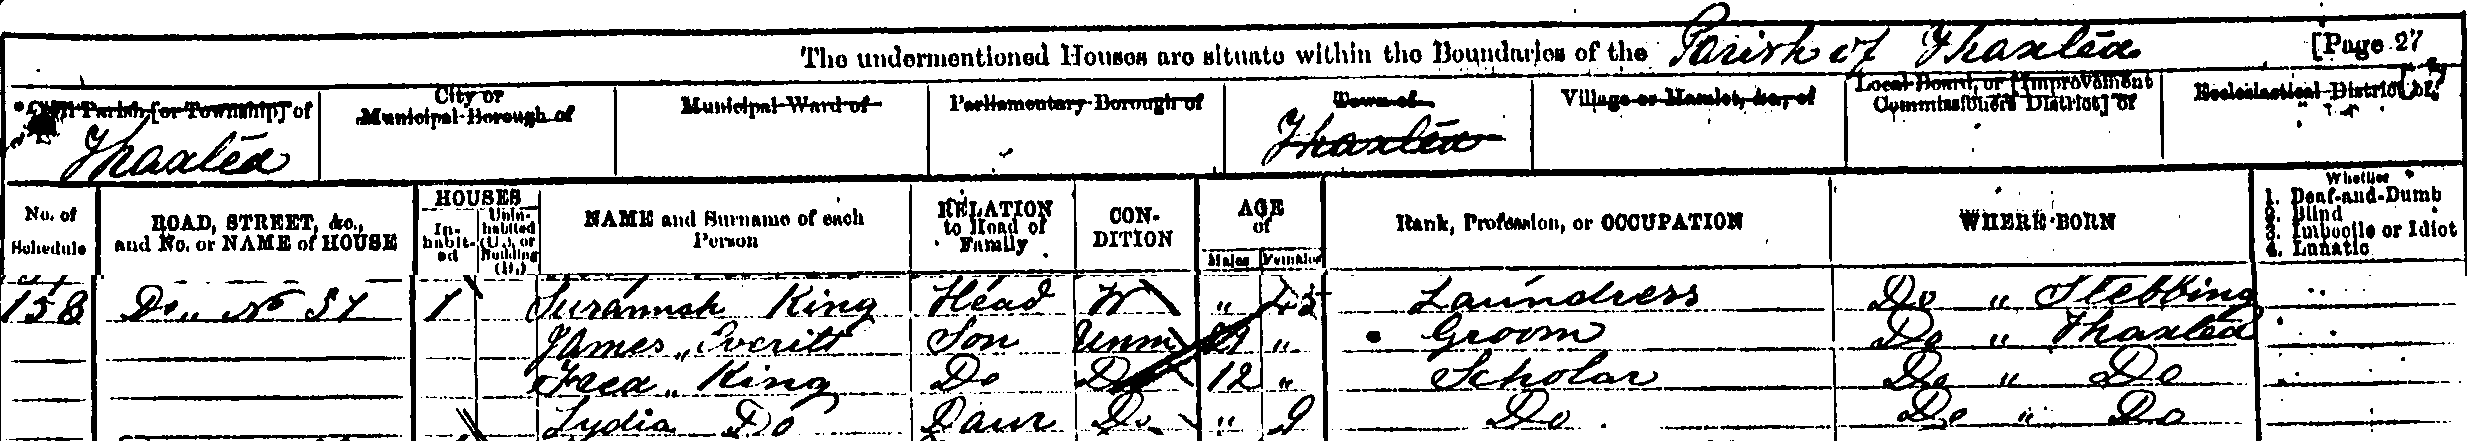 The undermentioned Houses are situate within the Boundaries of the Parish of Thaxted [Page 27
Civil Parish [or Township] of
City or Municipal Borough of
Municipal Ward of
Parliamentary Borough of
Town of
Village or Hamlet, &c., of
Local Board, or [Improvement Commissioners District] of
Ecclesiastical District of
Thaxted Thaxted
No. of Schedule
ROAD, STREET, &c., and No. or NAME of HOUSE
HOUSES
In-habit-ed
Unin-habited (U.), or Building (B.)
NAME and Surname of each Person
RELATION to Head of Family
CON-DITION
AGE of
Males Females
Rank, Profession, or OCCUPATION
WHERE BORN
Whether
1. Deaf-and-Dumb
2. Blind
3. Imbecile or Idiot
4. Lunatic
158 Do " No 1 Susannah King Head W " 45 Laundress Do " Stebbing
James " Everitt Son Unm " Groom Do " Thaxted
Fred " King Do Do 12 " Scholar Do " Do
Lydia Do Daur Do " 9 Do Do " Do